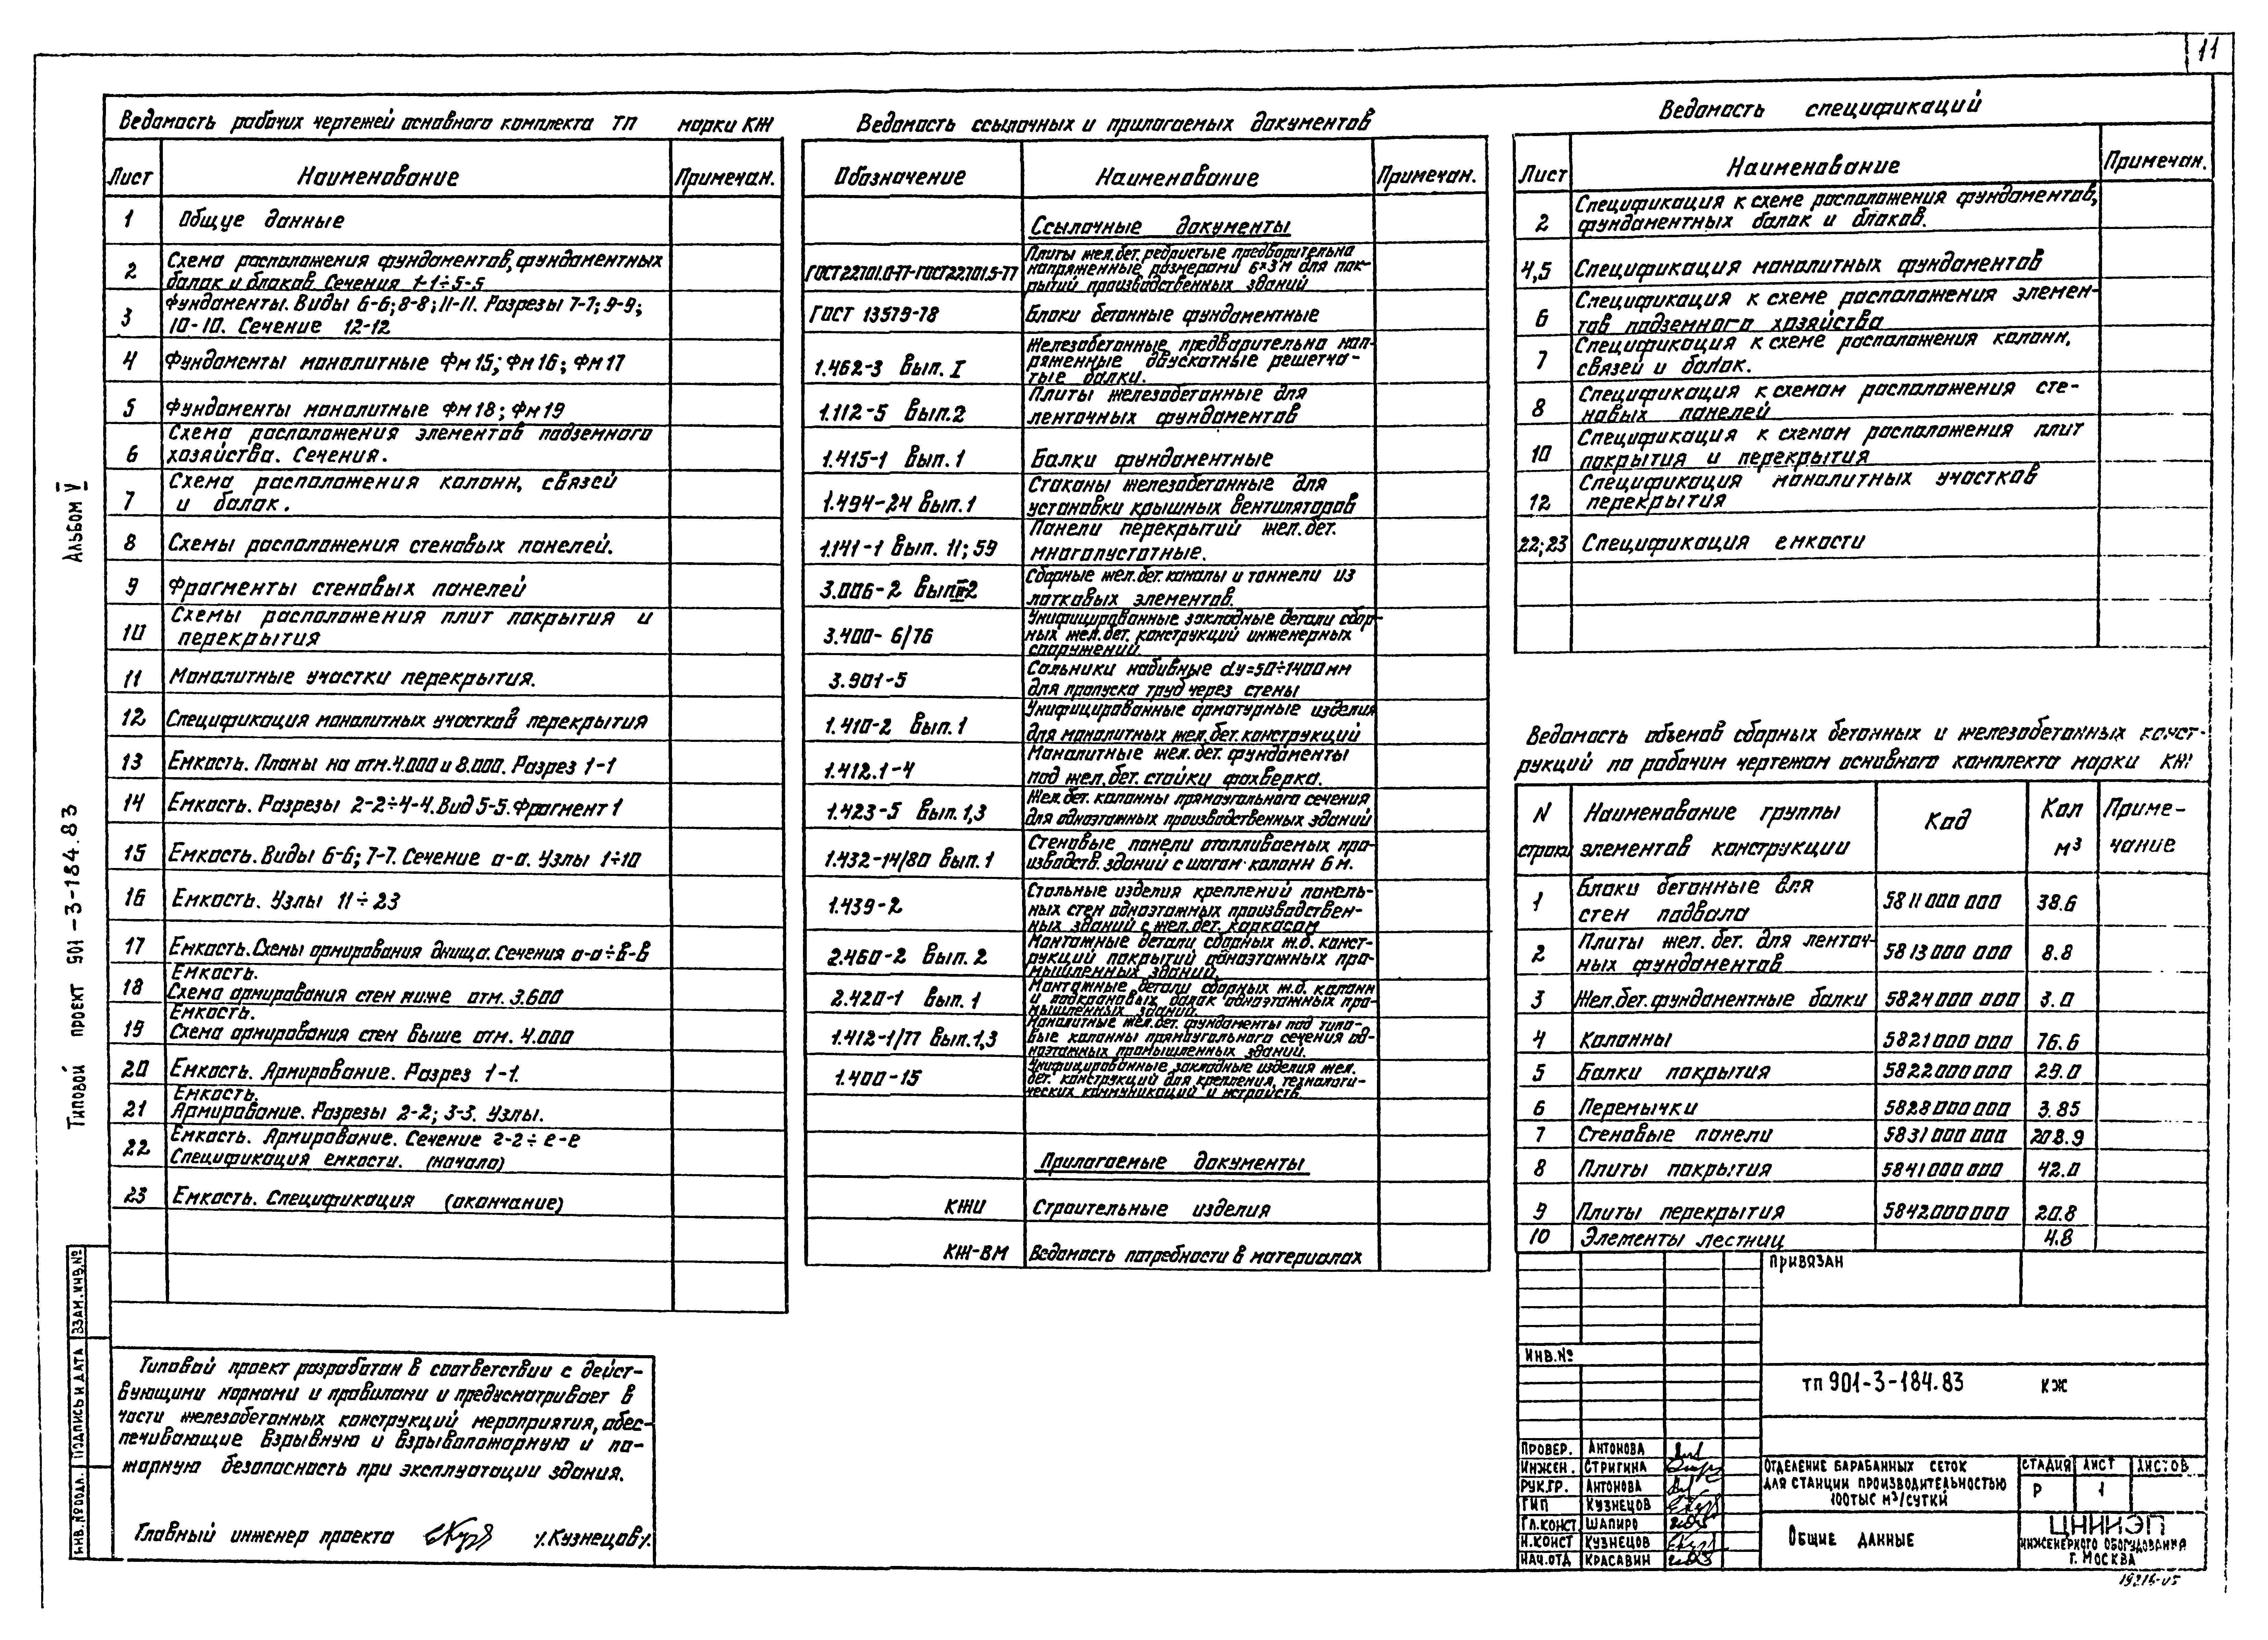 11
Ведомость рабочих чертежей основного комплекта ТП марки КЖ
Лист Наименование Примечан.
1 Общие данные
2 Схема расположения фундаментов, фундаментных
балок и блоков. Сечения 1-1÷5-5
3 Фундаменты. Виды 6-6; 8-8; 11-11. Разрезы 7-7; 9-9;
10-10. Сечение 12-12
4 Фундаменты монолитные Фм 15; Фм 16; Фм 17
5 Фундаменты монолитные Фм 18; Фм 19
6 Схема расположения элементов подземного
хозяйства. Сечения.
7 Схема расположения колонн, связей
и балок.
8 Схемы расположения стеновых панелей.
9 Фрагменты стеновых панелей
10 Схемы расположения плит покрытия и
перекрытия
11 Монолитные участки перекрытия.
12 Спецификация монолитных участков перекрытия
13 Емкость. Планы на отм. 4.000 и 8.000. Разрез 1-1
14 Емкость. Разрезы 2-2÷4-4. Вид 5-5. Фрагмент 1
15 Емкость. Виды 6-6; 7-7. Сечение а-а. Узлы 1÷10
16 Емкость. Узлы 11÷23
17 Емкость. Схемы армирования днища. Сечения а-а÷в-в
18 Емкость.
Схема армирования стен ниже отм. 3.600
19 Емкость.
Схема армирования стен выше отм. 4.000
20 Емкость. Армирование. Разрез 1-1.
21 Емкость.
Армирование. Разрезы 2-2; 3-3. Узлы.
22 Емкость. Армирование. Сечение г-г÷е-е
Спецификация емкости. (начало)
23 Емкость. Спецификация (окончание)
Ведомость ссылочных и прилагаемых документов
Обозначение Наименование Примечан.
Ссылочные документы
ГОСТ 22701.0-77-ГОСТ 22701.5-77 Плиты жел. бет. ребристые предварительно
напряженные размерами 6×3м для пок-
рытий производственных зданий
ГОСТ 13579-78 Блоки бетонные фундаментные
1.462-3 Вып. I Железобетонные предварительно нап-
ряженные двускатные решетча-
тые балки.
1.112-5 Вып. 2 Плиты железобетонные для
ленточных фундаментов
1.415-1 Вып. 1 Балки фундаментные
1.494-24 Вып. 1 Стаканы железобетонные для
установки крышных вентиляторов
1.141-1 Вып. 11; 59 Панели перекрытий жел. бет.
многопустотные.
3.006-2 Вып. II-2 Сборные жел. бет. каналы и тоннели из
лотковых элементов.
3.400-6/76 Унифицированные закладные детали сбор-
ных жел. бет. конструкций инженерных
сооружений.
3.901-5 Сальники набивные dу=50÷1400мм
для пропуска труб через стены
1.410-2 Вып. 1 Унифицированные арматурные изделия
для монолитных жел. бет. конструкций
1.412.1-4 Монолитные жел. бет. фундаменты
под жел. бет. стойки фахверка.
1.423-5 Вып. 1,3 Жел. бет. колонны прямоугольного сечения
для одноэтажных производственных зданий
1.432-14/80 Вып. 1 Стеновые панели отапливаемых про-
изводств. зданий с шагом колонн 6 м.
1.439-2 Стальные изделия креплений панель-
ных стен одноэтажных производствен-
ных зданий с жел. бет. каркасом
2.460-2 Вып. 2 Монтажные детали сборных ж.б. конст-
рукций покрытий одноэтажных про-
мышленных зданий.
2.420-1 Вып. 1 Монтажные детали сборных ж.б. колонн
и подкрановых балок одноэтажных про-
мышленных зданий.
1.412-1/77 Вып. 1,3 Монолитные жел. бет. фундаменты под типо-
вые колонны прямоугольного сечения од-
ноэтажных промышленных зданий.
1.400-15 Унифицированные закладные изделия жел.
бет. конструкций для крепления технологи-
ческих коммуникаций и устройств
Прилагаемые документы
КЖИ Строительные изделия
КЖ-ВМ Ведомость потребности в материалах
Ведомость спецификаций
Лист Наименование Примечан.
2 Спецификация к схеме расположения фундаментов,
фундаментных балок и блоков.
4,5 Спецификация монолитных фундаментов
6 Спецификация к схеме расположения элемен-
тов подземного хозяйства
7 Спецификация к схеме расположения колонн,
связей и балок.
8 Спецификация к схемам расположения сте-
новых панелей
10 Спецификация к схемам расположения плит
покрытия и перекрытия
12 Спецификация монолитных участков
перекрытия
22; 23 Спецификация емкости
Ведомость объемов сборных бетонных и железобетонных конст-
рукций по рабочим чертежам основного комплекта марки КЖ
N строки Наименование группы элементов конструкции Код Кол м³ Приме-чание
1 Блоки бетонные для
стен подвала 5811 000 000 38.6
2 Плиты жел. бет. для ленточ-
ных фундаментов 5813 000 000 8.8
3 Жел. бет. фундаментные балки 5824 000 000 3.0
4 Колонны 5821 000 000 76.6
5 Балки покрытия 5822 000 000 29.0
6 Перемычки 5828 000 000 3.85
7 Стеновые панели 5831 000 000 208.9
8 Плиты покрытия 5841 000 000 42.0
9 Плиты перекрытия 5842 000 000 20.8
10 Элементы лестниц 4.8
Типовой проект разработан в соответствии с дейст-
вующими нормами и правилами и предусматривает в
части железобетонных конструкций мероприятия, обес-
печивающие взрывную и взрывопожарную и по-
жарную безопасность при эксплуатации здания.
Главный инженер проекта /Кузнецов/
Альбом V
Типовой проект 901-3-184.83
ВЗАМ. ИНВ. №
ПОДПИСЬ И ДАТА
ИНВ. № ПОДЛ.
ПРИВЯЗАН
ИНВ. №
ТП 901-3-184.83 КЖ
ПРОВЕР. АНТОНОВА
ИНЖЕН. СТРИГИНА
РУК.ГР. АНТОНОВА
ГИП КУЗНЕЦОВ
ГЛ.КОНСТ ШАПИРО
Н.КОНСТ КУЗНЕЦОВ
НАЧ.ОТД КРАСАВИН
ОТДЕЛЕНИЕ БАРАБАННЫХ СЕТОК
ДЛЯ СТАНЦИИ ПРОИЗВОДИТЕЛЬНОСТЬЮ
100ТЫС М³/СУТКИ
СТАДИЯ ЛИСТ ЛИСТОВ
Р 1
ОБЩИЕ ДАННЫЕ
ЦНИИЭП
ИНЖЕНЕРНОГО ОБОРУДОВАНИЯ
Г. МОСКВА
19216-05